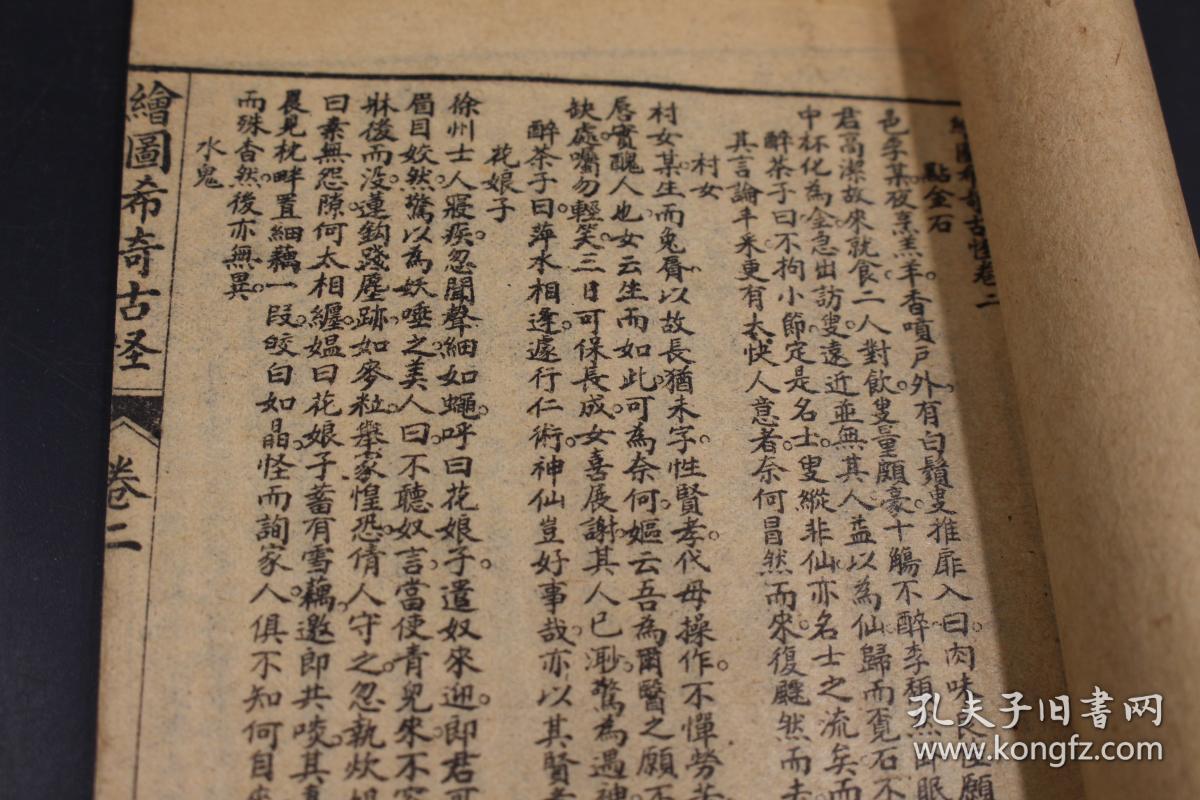 繪圖希奇古怪卷二
點金石
邑李某夜烹羔羊香噴戶外有白鬚叟推扉入曰肉味
君高潔故來就食二人對飲叟量頗豪十觴不醉李
中杯化為金急出訪叟遠近並無其人益以為仙歸而覓石不
醉茶子曰不拘小節定是名士叟縱非仙亦名士之流矣而
其言論丰采更有大快人意者奈何昌然而來復飄然而去
村女
村女某生而兔脣以故長猶未字性賢孝代母操作不憚勞苦
唇實醜人也女云生而如此可為奈何嫗云吾為爾醫之願不
缺處囑勿輕笑三日可保長成女喜展謝其人已渺驚為遇神
醉茶子曰萍水相逢遽行仁術神仙豈好事哉亦以其賢孝
花娘子
徐州士人寢疾忽聞聲細如蠅呼曰花娘子遣奴來迎即君可
眉目姣然驚以為妖唾之美人曰不聽奴言當使青兒來不容
牀後而没蓮鈎踐塵跡如麥粒舉家惶恐倩人守之忽執炊媼
曰素無怨隙何太相纏媼曰花娘子蓄有雪藕邀即共啖其真
晨見枕畔置細藕一段皎白如晶怪而詢家人俱不知何自來
而殊香然後亦無異
水鬼
繪圖希奇古怪
卷二
孔夫子旧书网
www.kongfz.com